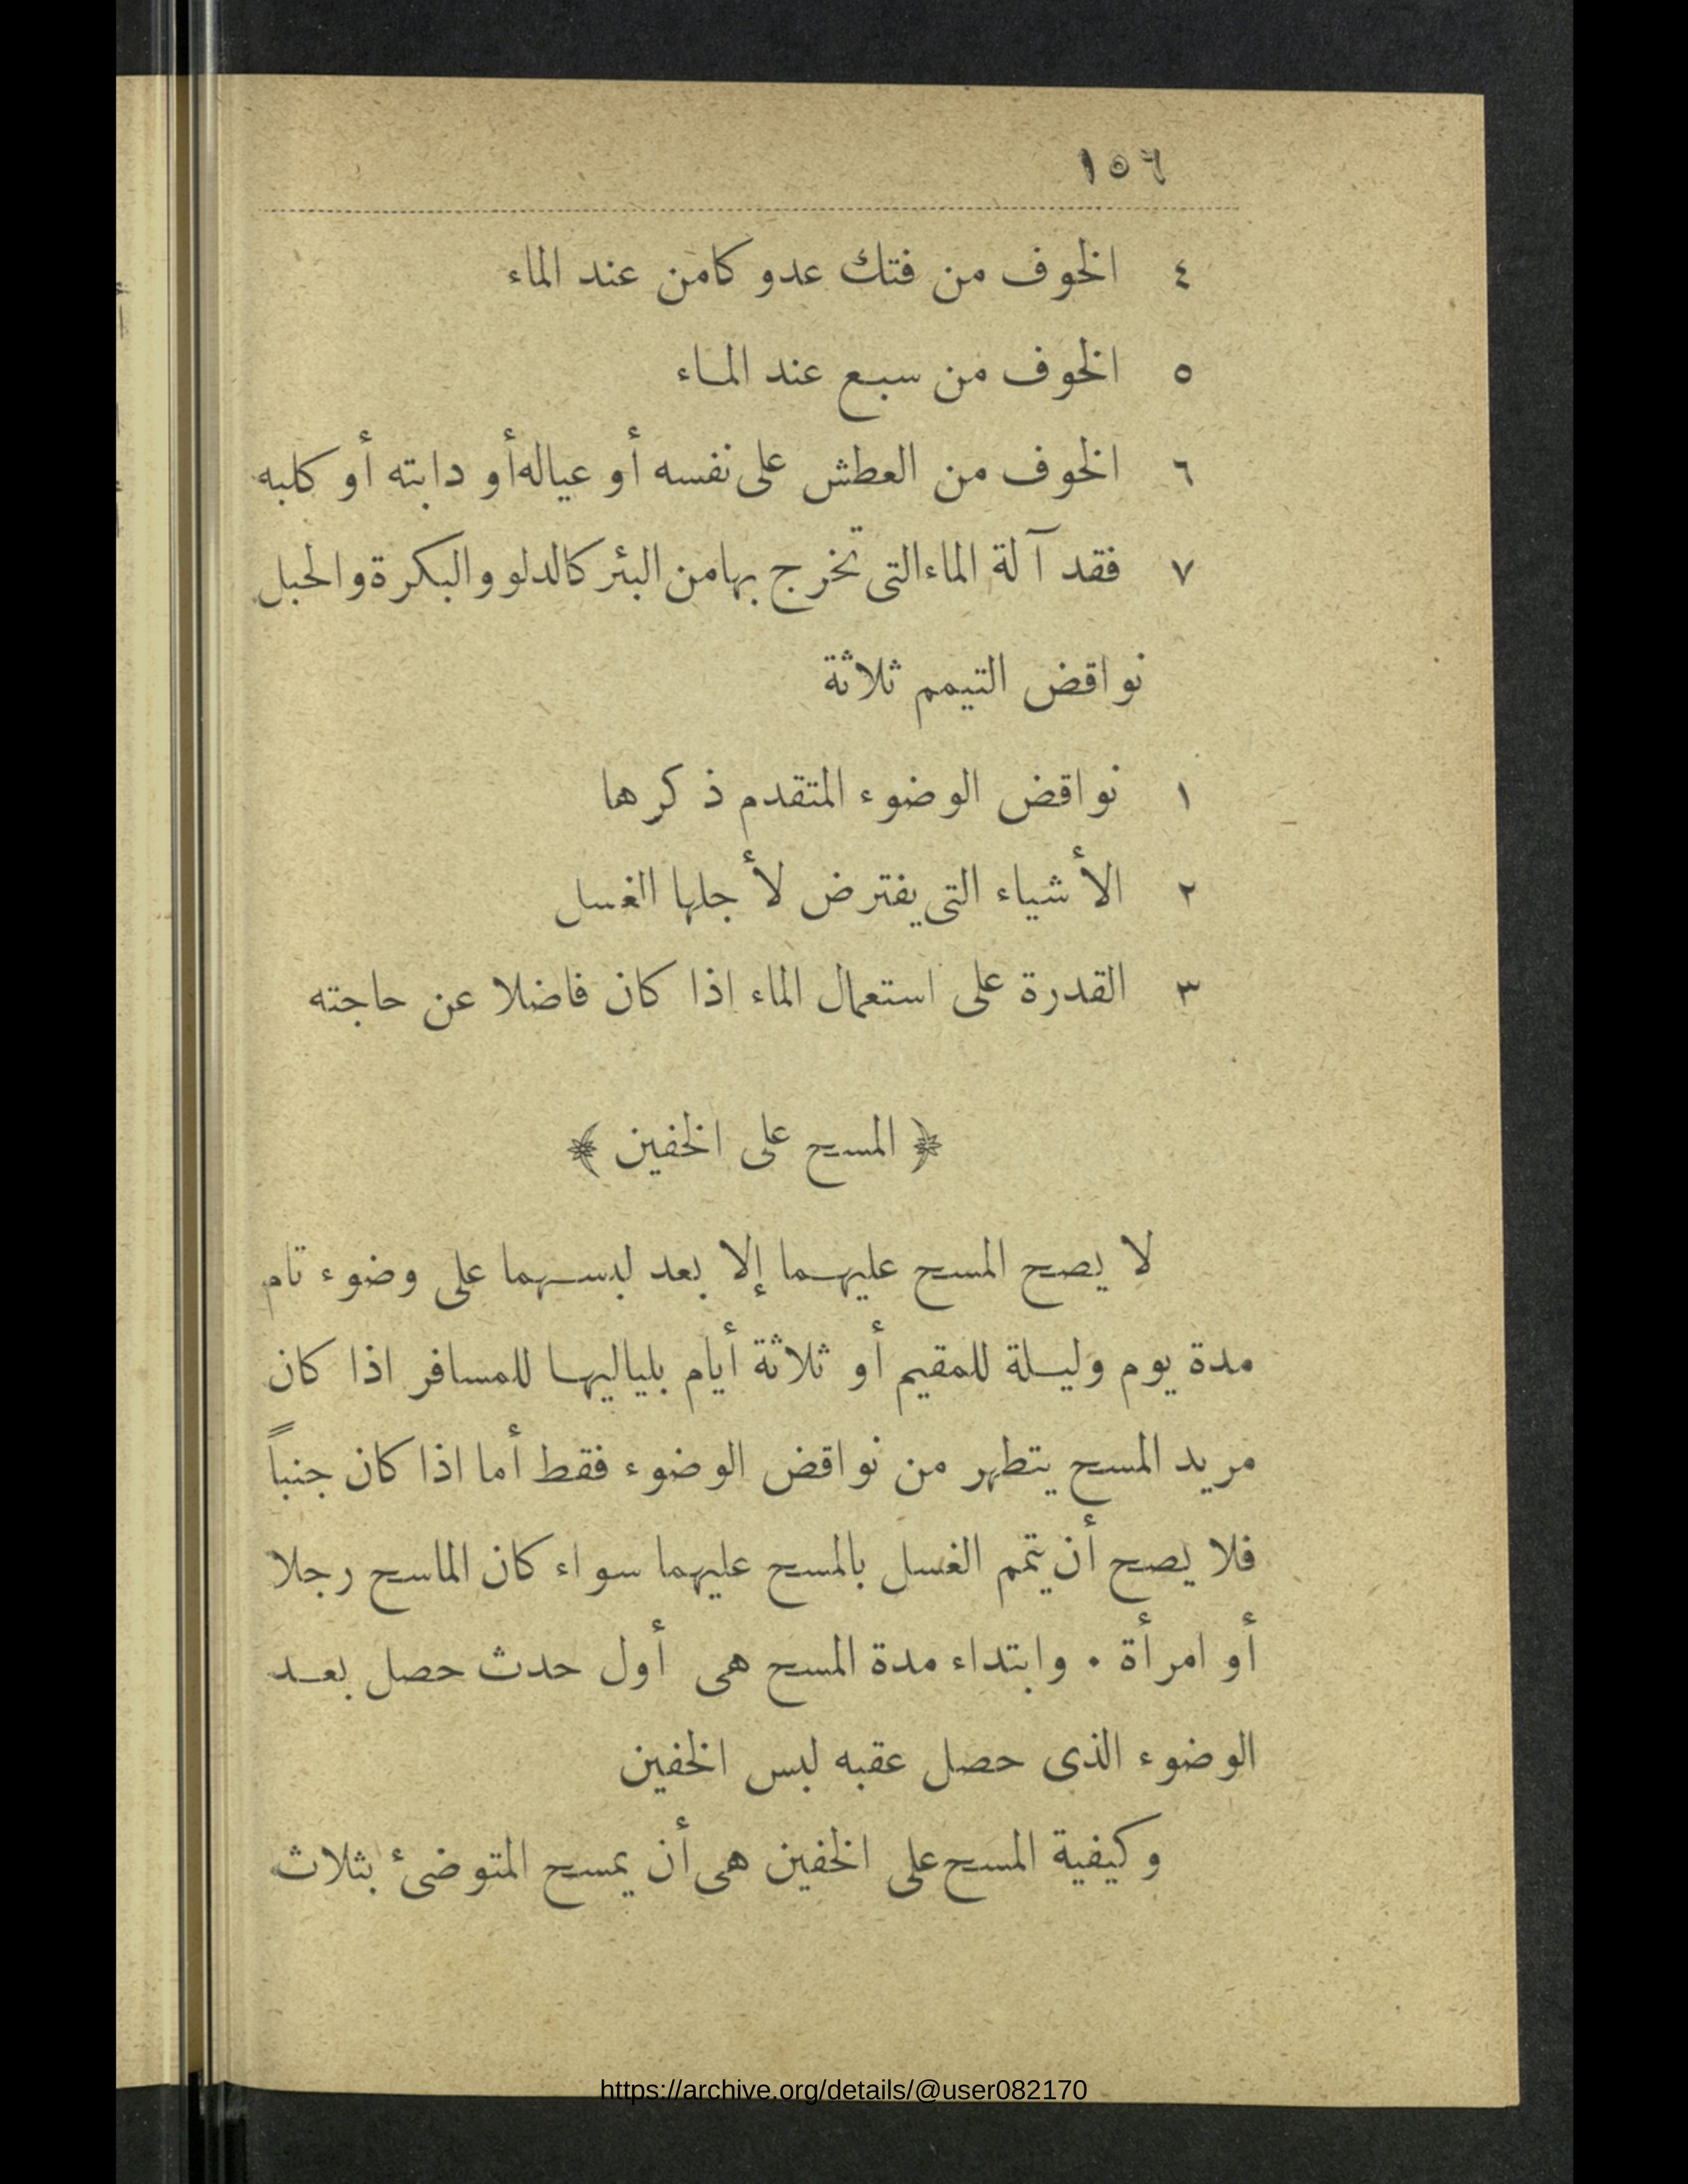 ١٥٦
٤ الخوف من فتك عدو كامن عند الماء
٥ الخوف من سبع عند الماء
٦ الخوف من العطش على نفسه أو عياله أو دابته أو كلبه
٧ فقد آلة الماء التى تخرج بها من البئر كالدلو والبكرة والحبل
نواقض التيمم ثلاثة
١ نواقض الوضوء المتقدم ذكرها
٢ الأشياء التى يفترض لأجلها الغسل
٣ القدرة على استعمال الماء اذا كان فاضلا عن حاجته
﴿ المسح على الخفين ﴾
لا يصح المسح عليهما إلا بعد لبسهما على وضوء تام
مدة يوم وليلة للمقيم أو ثلاثة أيام بلياليها للمسافر اذا كان
مريد المسح يتطهر من نواقض الوضوء فقط أما اذا كان جنباً
فلا يصح أن يتمم الغسل بالمسح عليهما سواء كان الماسح رجلا
أو امرأة . وابتداء مدة المسح هى أول حدث حصل بعد
الوضوء الذى حصل عقبه لبس الخفين
وكيفية المسح على الخفين هى أن يمسح المتوضئ بثلاث
https://archive.org/details/@user082170